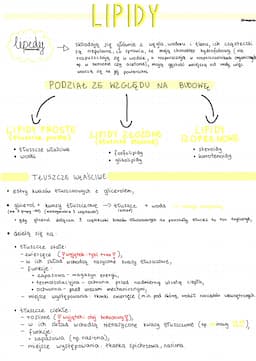 LIPIDY
lipidy → składają się głównie z węgla, wodoru i tlenu, ich cząsteczki
są niepolarne, co sprawia, że mają charakter hydrofobowy (nie
rozpuszczają się w wodzie, a rozpuszczają w rozpuszczalnikach organicznych
np. w benzenie czy acetonie), mają gęstość mniejszą od wody, więc
unoszą się na jej powierzchni
PODZIAŁ ZE WZGLĘDU NA BUDOWĘ
LIPIDY PROSTE
• tłuszcze właściwe
• woski
LIPIDY ZŁOŻONE
• fosfolipidy
• glikolipidy
LIPIDY IZOPRENOWE
• steroidy
• karotenoidy
TŁUSZCZE WŁAŚCIWE
• estry kwasów tłuszczowych z glicerolem,
• glicerol + kwasy tłuszczowe → tłuszcze + woda
• dzielą się na:
- tłuszcze stałe:
- zwierzęce (wyjątek: tran)
- w ich skład wchodzą nasycone kwasy tłuszczowe,
- funkcje:
• zapasowa - magazyn energii,
• termoizolacyjna - ochrona przed nadmierną utratą ciepła,
• ochronna - przed urazami mechanicznymi,
- miejsce występowania: tkanki zwierzęce (m.in. pod skórą, wokół narządów wewnętrznych),
- tłuszcze ciekłe:
- roślinne (wyjątek: olej kokosowy),
- w ich skład wchodzą nienasycone kwasy tłuszczowe
- funkcje:
• zapasowa (np. nasiona),
- miejsce występowania: tkanka spichrzowa, nasiona